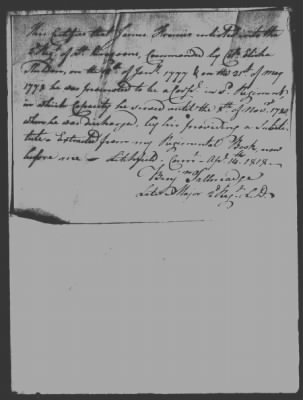 This Certifies that James inlisted into the
2d Regt of Lt Dragoons, Commanded by Col Elisha
Sheldon, on the of Jany 1777 & on the 21st of May
1778 he was promoted to be a Corpl in sd Regiment
in which Capacity he served until the 8th of Novr 1780
when he was discharged, by his providing a Substi-
tute - Extracted from my Regimental Book, now
before me - Litchfield, Connt Apl 14th 1818 -
Benjn Tallmadge
Late Major 2d Regt L.D.